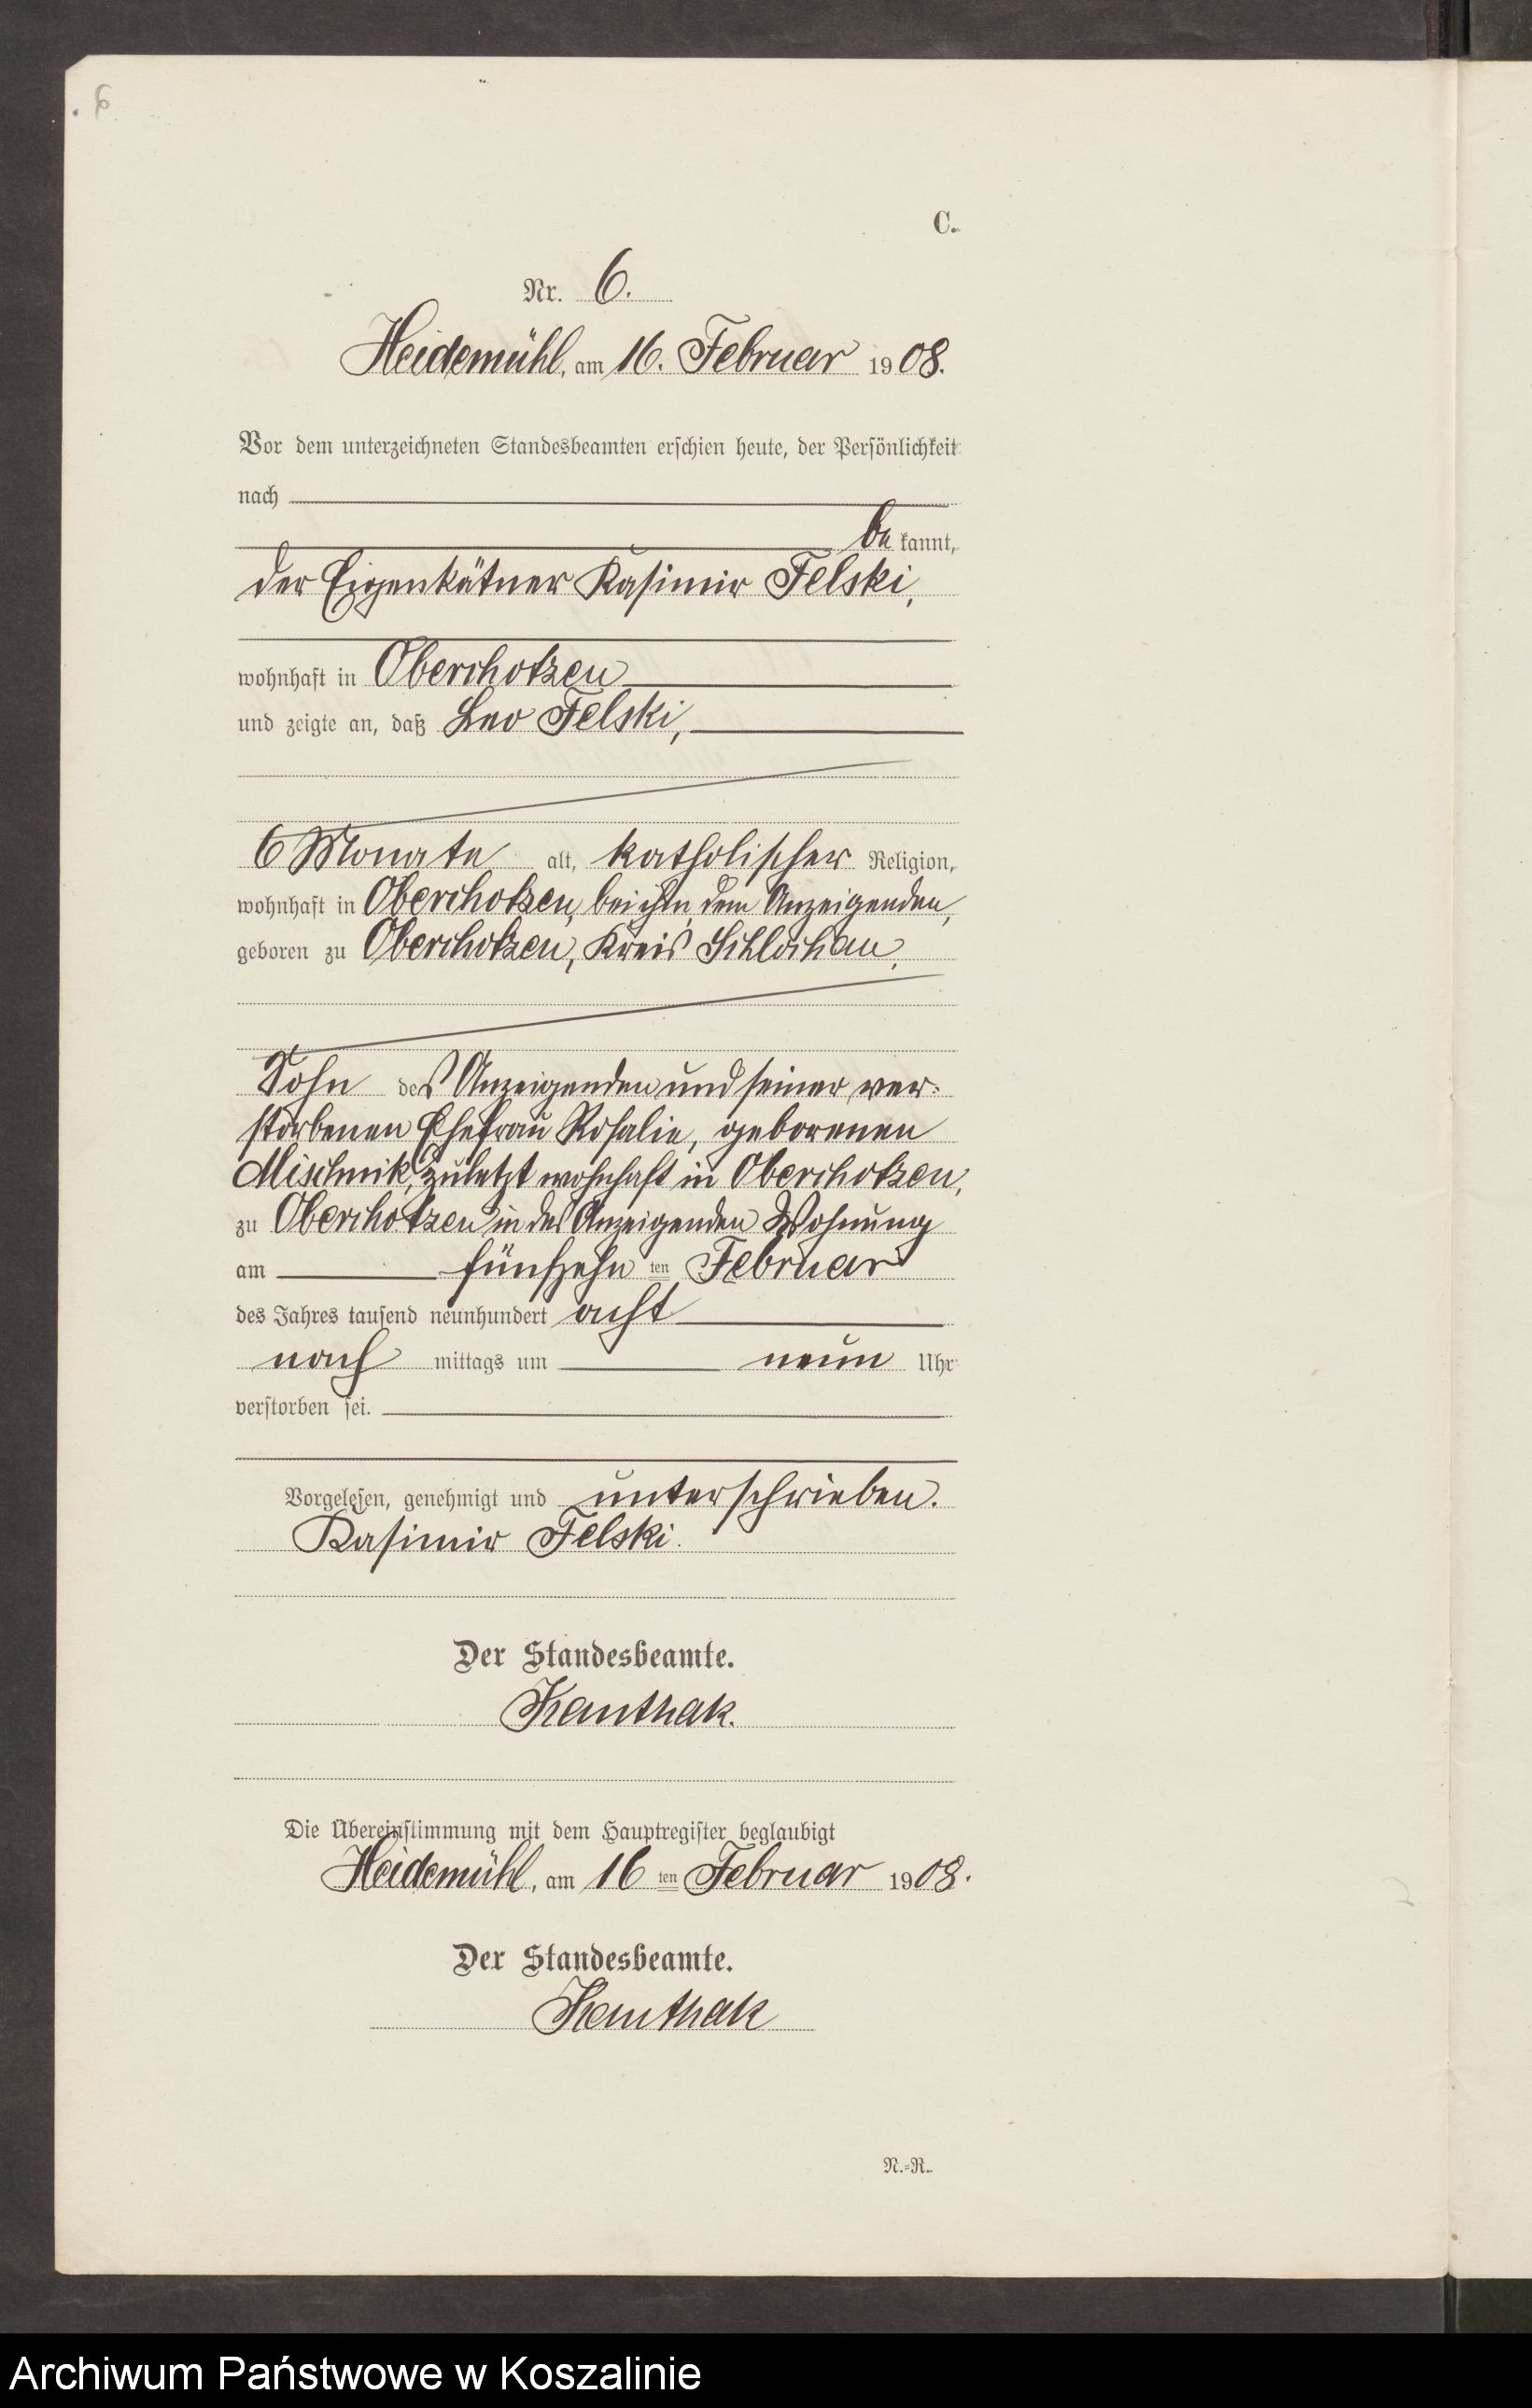 6
C.
Nr. 6.
Heidemühl, am 16. Februar 1908.
Vor dem unterzeichneten Standesbeamten erschien heute, der Persönlichkeit
nach
be kannt,
der Eigenkätner Kasimir Felski,
wohnhaft in Oberchotzen
und zeigte an, daß Leo Felski,
6 Monate alt, katholischer Religion,
wohnhaft in Oberchotzen, bei ihm, dem Anzeigenden,
geboren zu Oberchotzen, Kreis Schlochau,
Sohn des Anzeigenden und seiner ver-
storbenen Ehefrau Rosalie, geborenen
Mischnik, zuletzt wohnhaft in Oberchotzen,
zu Oberchotzen in des Anzeigenden Wohnung
am fünfzehn ten Februar
des Jahres tausend neunhundert acht
nach mittags um neun Uhr
verstorben sei.
Vorgelesen, genehmigt und unterschrieben.
Kasimir Felski.
Der Standesbeamte.
Kauthak.
Die Übereinstimmung mit dem Hauptregister beglaubigt
Heidemühl, am 16 ten Februar 1908.
Der Standesbeamte.
Kauthak
N.-R.
Archiwum Państwowe w Koszalinie